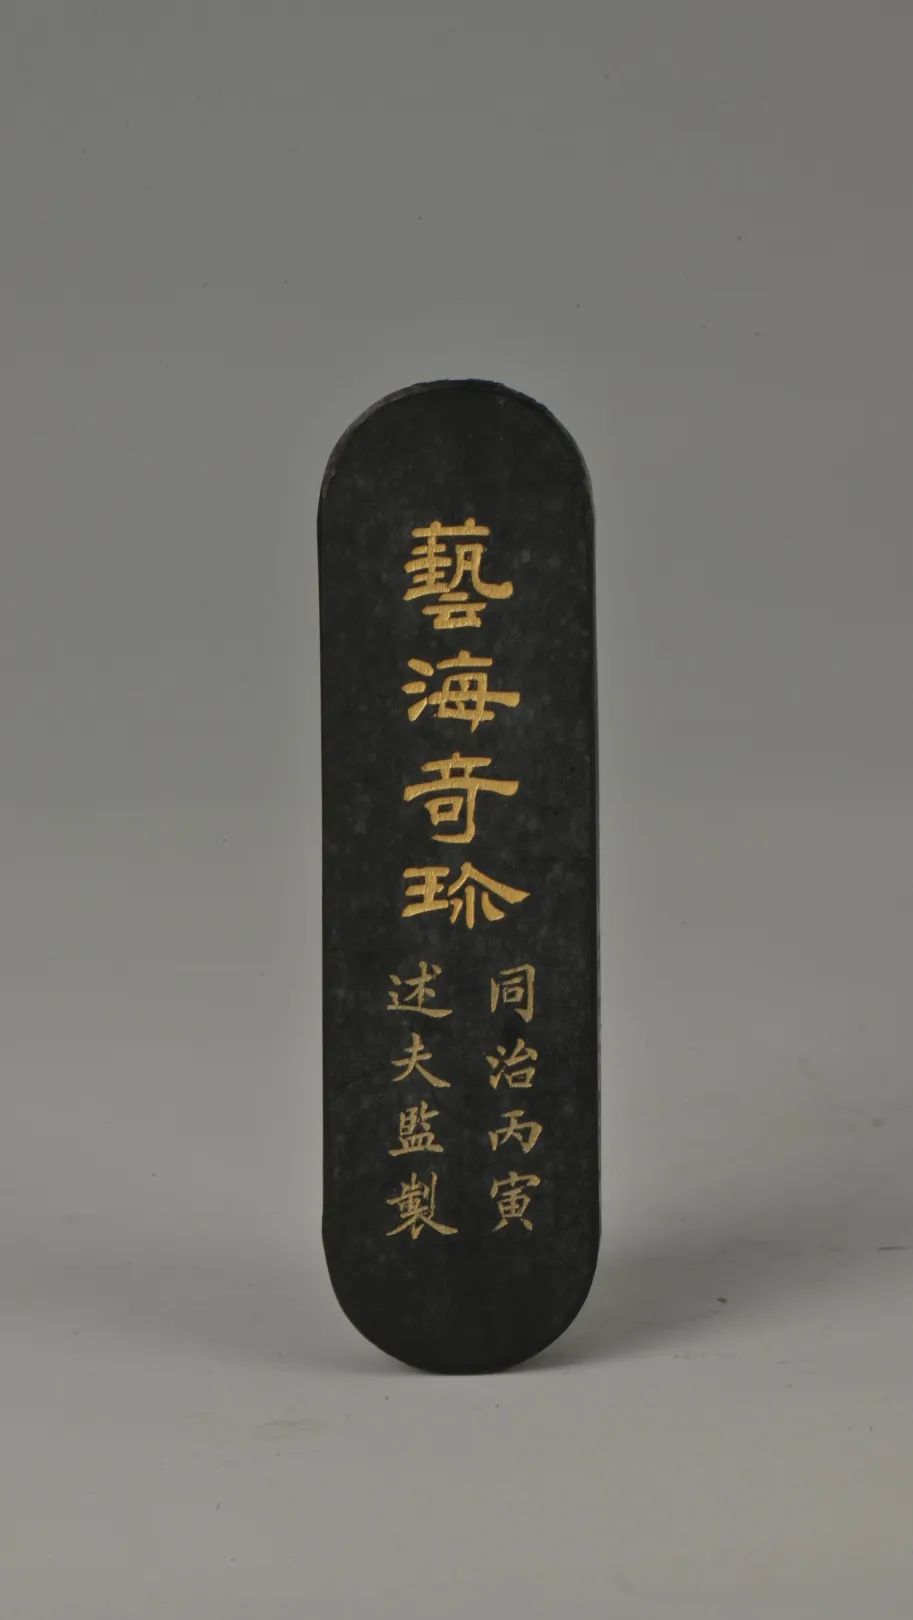 藝海奇珎
同治丙寅
述夫監製